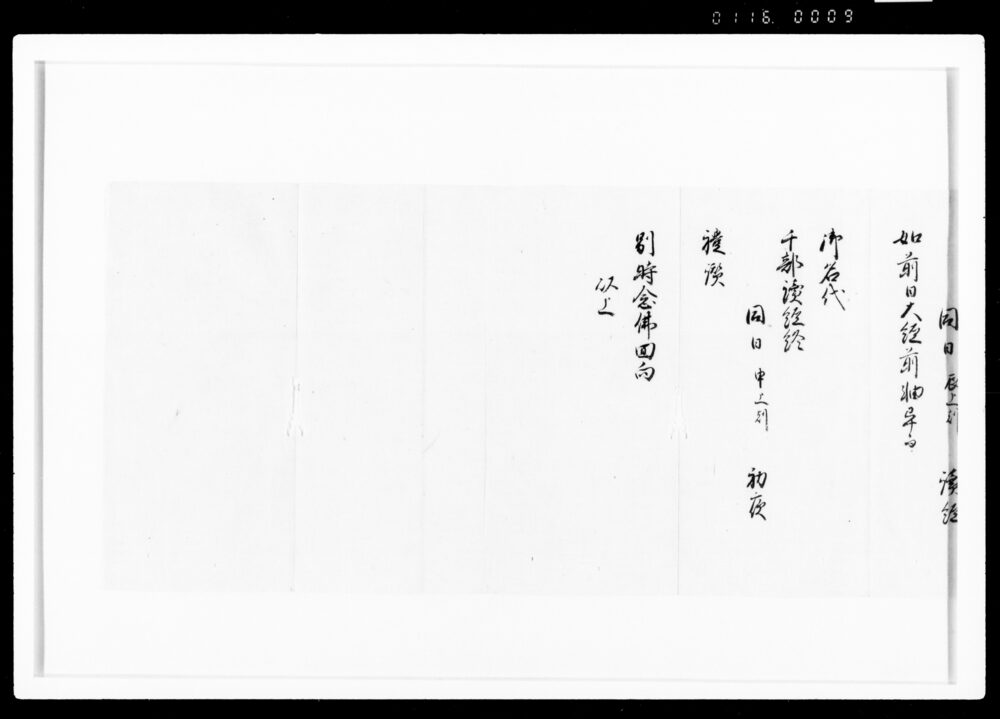 0116.0009
同日 辰上刻 讀經
如前日大經前軸早而
御名代
千部讀經終
同日 申上刻 初夜
禮讃
別時念佛回向
以上